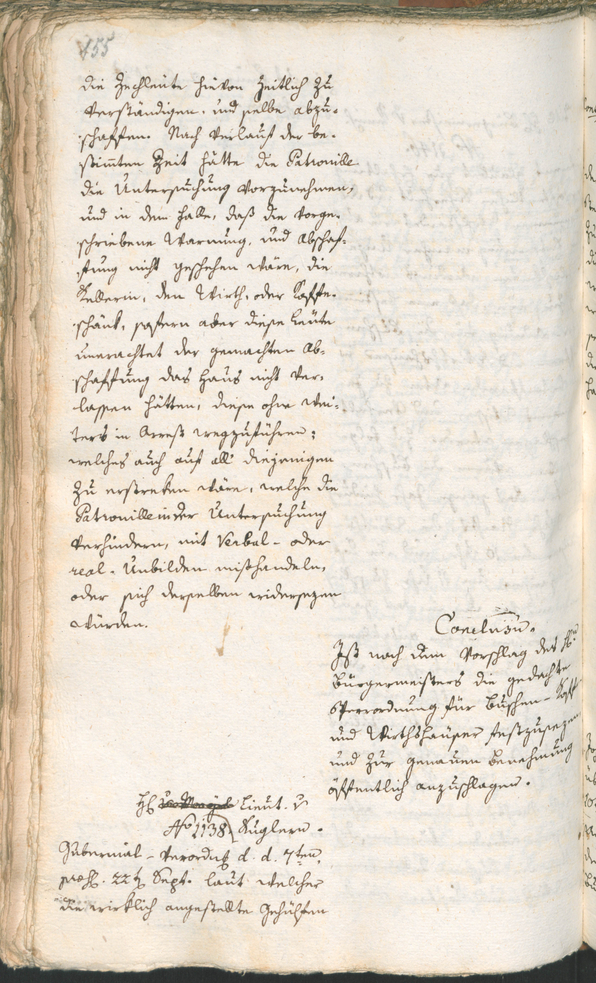 455
die Zechleute hievon zeitlich zu
verständigen, und selbe abzu-
schaffen. Nach Verlauf der be-
stimten Zeit hätte die Patrouille
die Untersuchung vorzunehmen,
und in dem Falle, daß die vorge-
schriebene Warnung, und Abschaf-
fung nicht geschehen wäre, die
Kellerin, den Wirth, oder Kaffee-
schänk, sofern aber diese Leute
unerachtet der gemachten Ab-
schaffung das Haus nicht ver-
lassen hätten, diese ohne wei-
ters in Arrest wegzuführen;
welches auch auf all' diejenigen
zu erstreken wäre, welche die
Patrouille in der Untersuchung
verhindern, mit Verbal- oder
real-Unbilden mißhandeln,
oder sich derselben widersezen
würden.
Conclusum.
Ist nach dem Vorschlag des H:
Bürgermeisters die gedachte
Sperrordnung für Buschen-
und Wirthshäuser festzusezen
und zur genauen Benehmung
öffentlich anzuschlagen.
Lieut. v
No 1138 Kuglern.
Gubernial-Verordnung d. d. 7ten
praes. 22 Sept. laut welcher
die wirklich angestellte Gehülfen